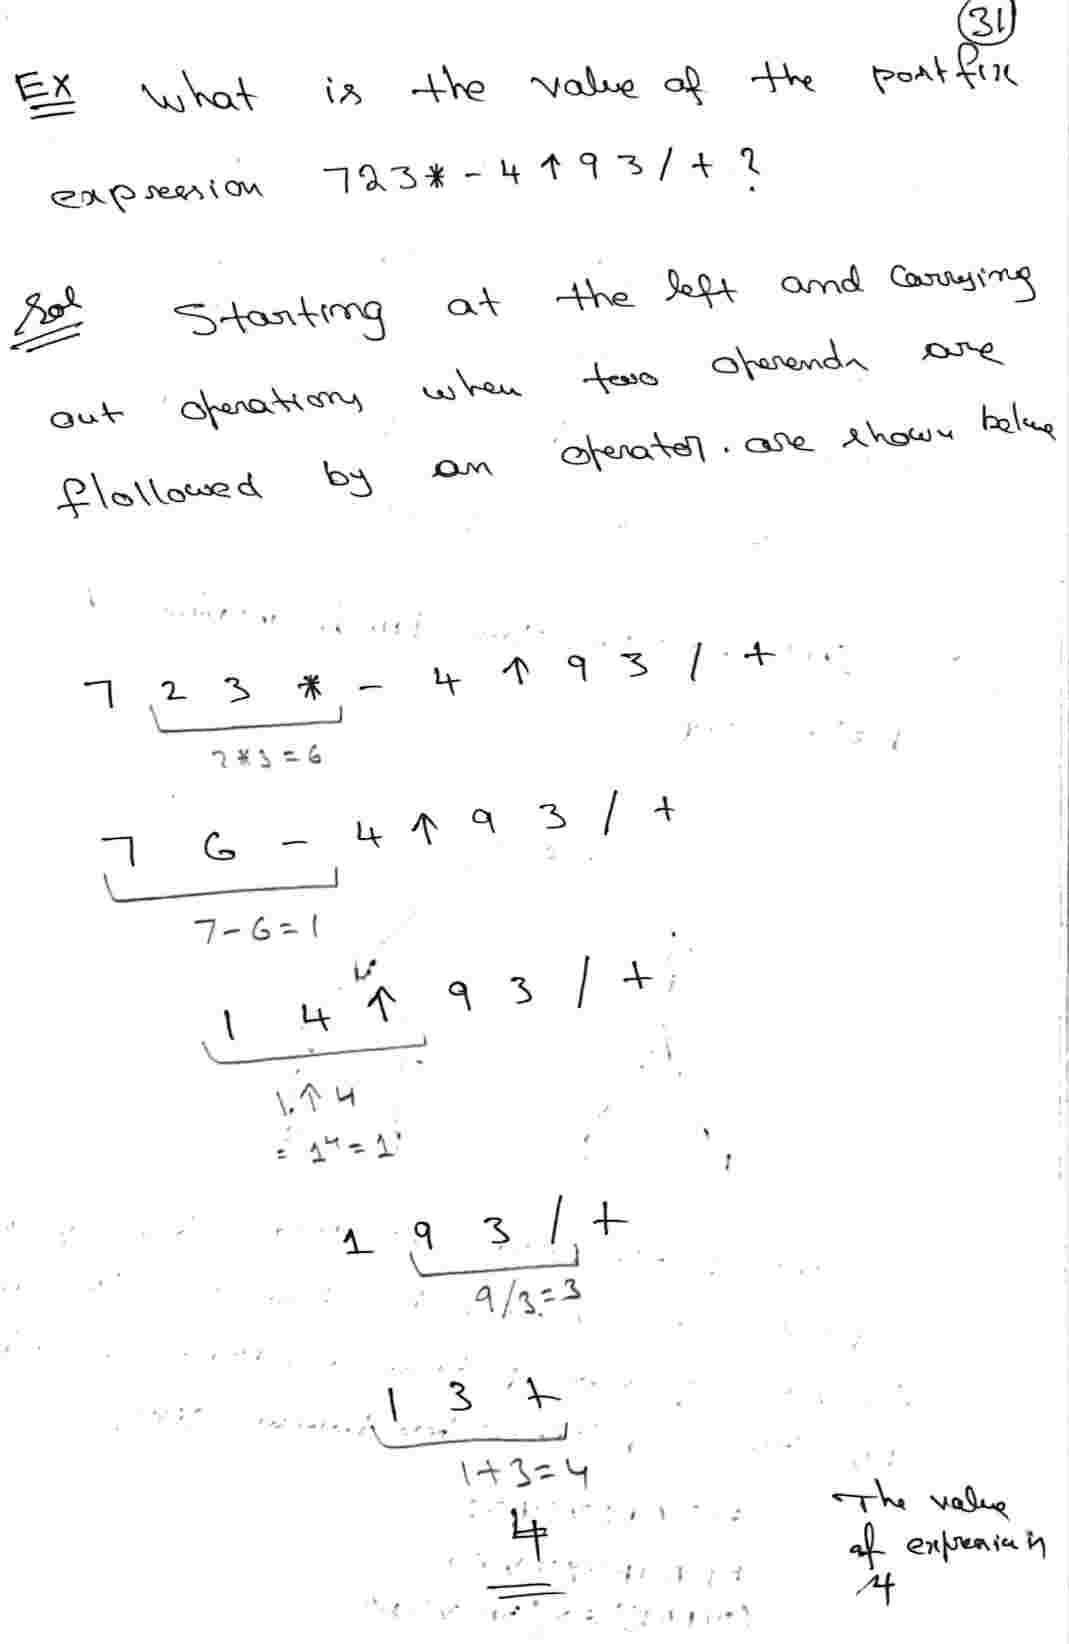 31
Ex What is the value of the postfix
expression 723*-4↑93/+?
Sol Starting at the left and carrying
out operations when two operends are
flollowed by an operator. are shown below
7 2 3 * - 4 ↑ 9 3 / +
2*3=6
7 6 - 4 ↑ 9 3 / +
7-6=1
1 4 ↑ 9 3 / +
1↑4
= 1⁴ = 1
1 9 3 / +
9/3=3
1 3 +
1+3=4
4
The value
of expression is
4